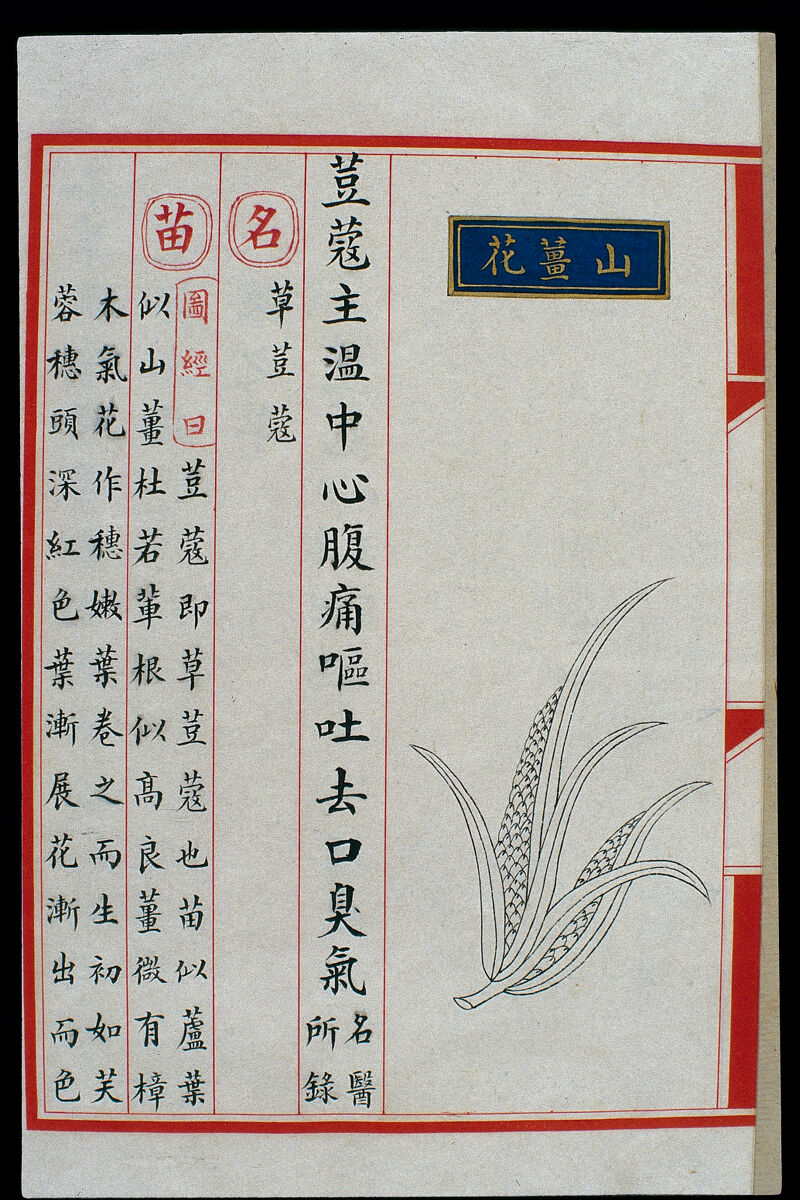 山薑花
荳蔻主温中心腹痛嘔吐去口臭氣
名醫
所錄
名
草荳蔻
苗
圖經曰荳蔻即草荳蔻也苗似蘆葉
似山薑杜若軰根似高良薑微有樟
木氣花作穗嫩葉卷之而生初如芙
蓉穗頭深紅色葉漸展花漸出而色